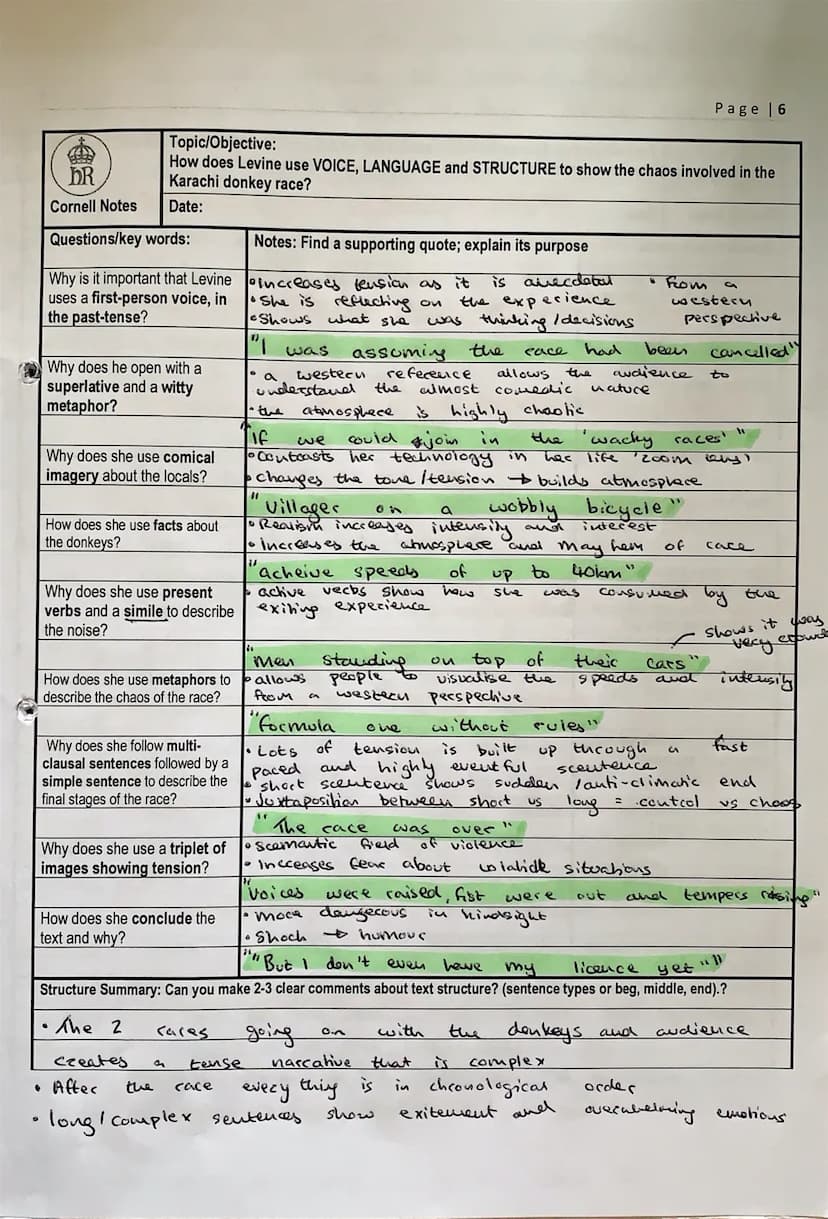 Page | 6
Topic/Objective:
How does Levine use VOICE, LANGUAGE and STRUCTURE to show the chaos involved in the
Karachi donkey race?
hR
Cornell Notes
Date:
Questions/key words:
Notes: Find a supporting quote; explain its purpose
Why is it important that Levine
uses a first-person voice, in
the past-tense?
• Increases tension as it is anecdotal • from a
• She is reflecting on the experience western
• Shows what she was thinking/decisions perspective
"I was assuming the race had been cancelled"
Why does he open with a
superlative and a witty
metaphor?
• a western reference allows the audience to
understand the almost comedic nature
• the atmosphere is highly chaotic
"If we could join in the 'wacky races'"
Why does she use comical
imagery about the locals?
• Contrasts her technology in her life 'zoom
• changes the tone/tension → builds atmosphere
"Villager on a wobbly bicycle"
How does she use facts about
the donkeys?
• Realism increases intensity and interest
• Increases the atmosphere and mayhem of race
"acheive speeds of up to 40km"
Why does she use present
verbs and a simile to describe
the noise?
• active verbs show how she was consumed by the
exiting experience
shows it was
very crowd
"Men standing on top of their cars"
How does she use metaphors to
describe the chaos of the race?
• allows people to visualise the speeds and intensity
from a western perspective
"formula one without rules"
Why does she follow multi-
clausal sentences followed by a
simple sentence to describe the
final stages of the race?
• Lots of tension is built up through a fast
paced and highly eventful scentence
• short scentence shows sudden /anti-climatic end
• Juxtaposition between short vs long = control vs chaos
"The race was over"
Why does she use a triplet of
images showing tension?
• Scemantic field of violence
• Increases fear about volatile situations
"Voices were raised, fist were out and tempers rising"
How does she conclude the
text and why?
• More dangerous in hindsight
• Shock → humour
""But I don't even have my licence yet""
Structure Summary: Can you make 2-3 clear comments about text structure? (sentence types or beg, middle, end).?
• The 2 races going on with the donkeys and audience
creates a tense narrative that is complex
• After the race every thing is in chronological order
• long/complex sentences show exitement and overwhelming emotions